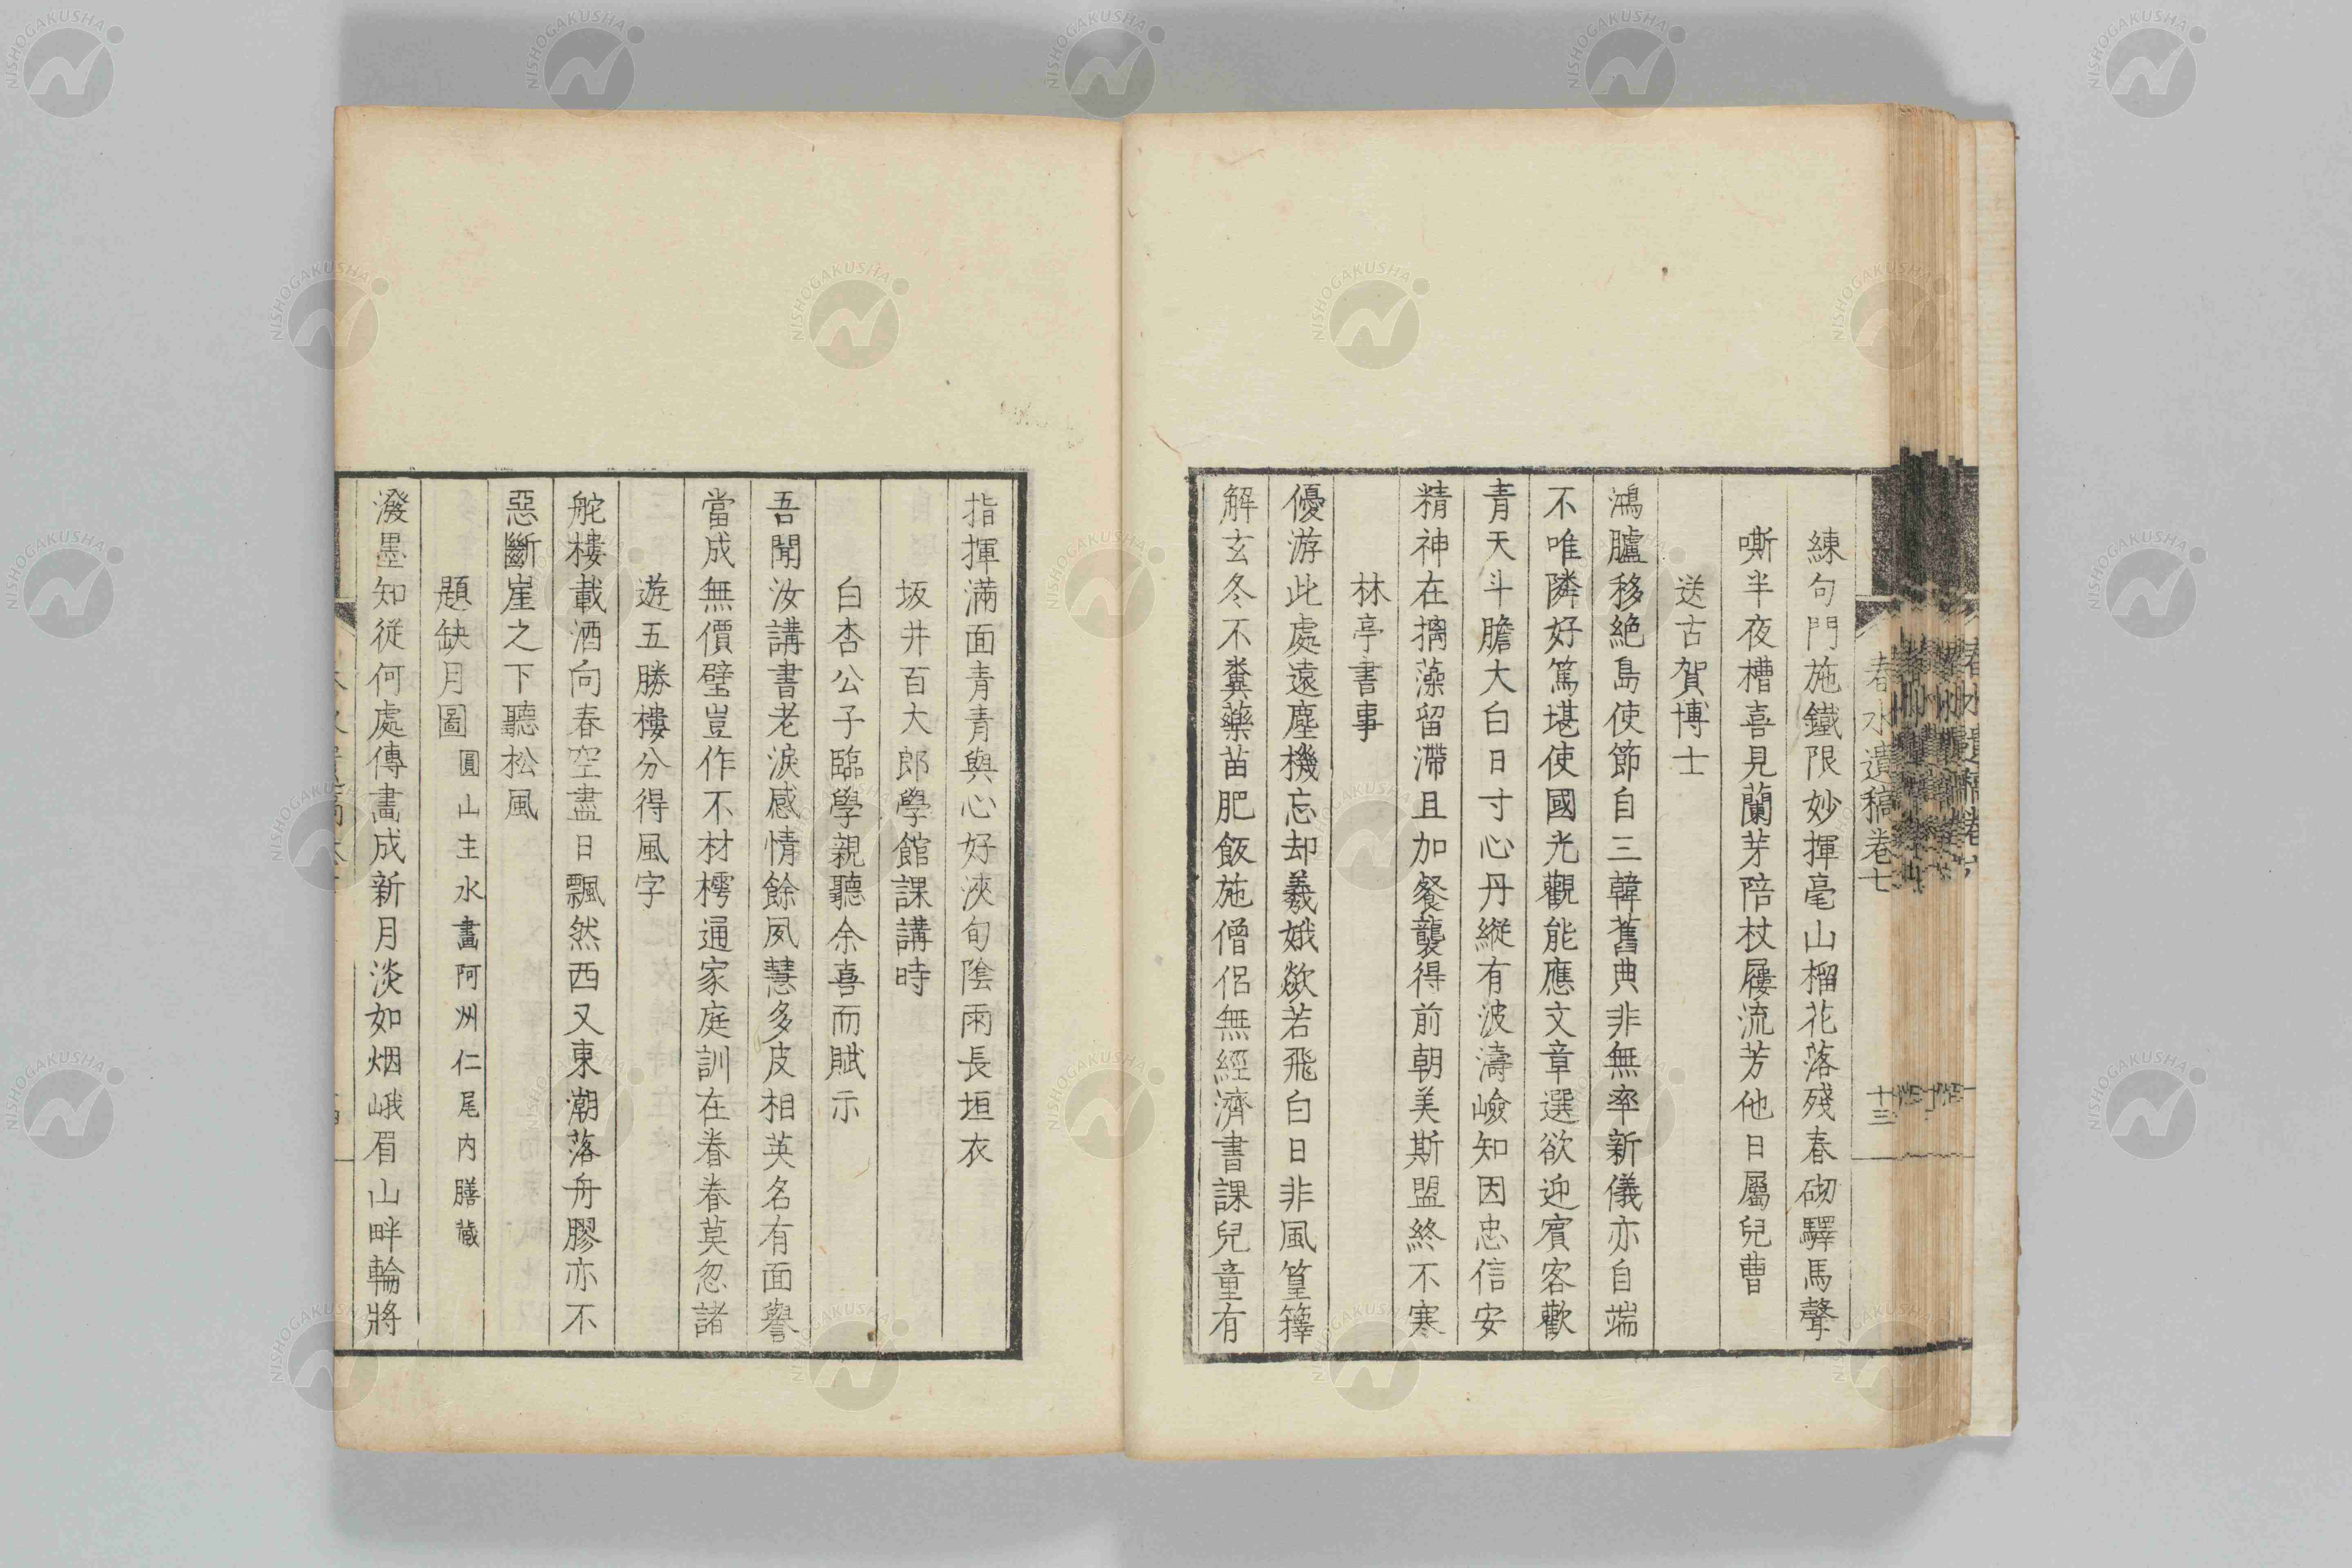 春水遺稿卷七
十三
練句門施鐵限妙揮毫山榴花落殘春砌驛馬聲
嘶半夜槽喜見蘭芽陪杖屨流芳他日屬兒曹
送古賀博士
鴻臚移絶島使節自三韓舊典非無率新儀亦自端
不唯隣好篤堪使國光觀能應文章選欲迎賓客歡
青天斗膽大白日寸心丹縱有波濤嶮知因忠信安
精神在摛藻留滯且加餐襲得前朝美斯盟終不寒
林亭書事
優游此處遠塵機忘却羲娥歘若飛白日非風篁籜
解玄冬不糞藥苗肥飯施僧侶無經濟書課兒童有
指揮滿面青青與心好浹旬陰雨長垣衣
坂井百大郎學館課講時
白杏公子臨學親聽余喜而賦示
吾聞汝講書老淚感情餘夙慧多皮相英名有面譽
當成無價璧豈作不材樗通家庭訓在眷眷莫忽諸
遊五勝樓分得風字
舵樓載酒向春空盡日飄然西又東潮落舟膠亦不
惡斷崖之下聽松風
題缺月圖 圓山主水畵阿洲仁尾内膳藏
潑墨知從何處傳畵成新月淡如烟峨眉山畔輪將
NISHOGAKUSHA